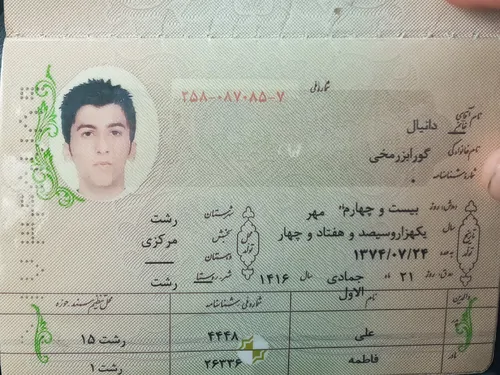 شماره ملی ۲۵۸-۰۸۷۰۸۵-۷
نام آقای/خانم دانیال
نام خانوادگی گورابزرمخی
شماره شناسنامه ۰
بیست و چهارم مهر
سال یکهزاروسیصد و هفتاد و چهار
۱۳۷۴/۰۷/۲۴
۲۱ ماه جمادی الاول سال ۱۴۱۶
تاریخ تولد
شهرستان رشت
بخش مرکزی
دهستان —
شهر، روستا رشت
محل تولد
والدین نام شماره ملی شناسنامه حوزه
علی ۴۴۴۸ رشت ۱۵
مادر فاطمه ۲۶۳۳۶ رشت ۱